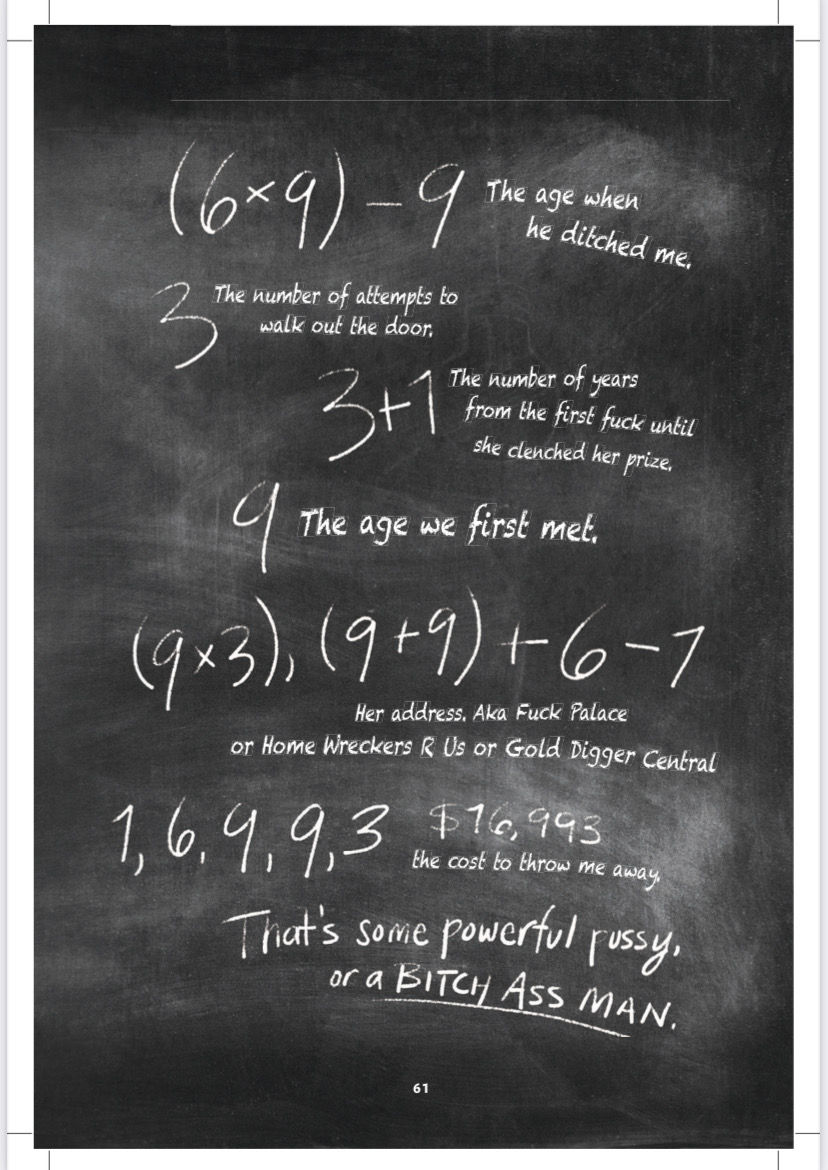 (6×9) – 9 The age when
he ditched me.
3 The number of attempts to
walk out the door.
3+1 The number of years
from the first fuck until
she clenched her prize.
9 The age we first met.
(9×3), (9+9) + 6 – 1
Her address. Aka Fuck Palace
or Home Wreckers R Us or Gold Digger Central
1, 6, 9, 9, 3 $16,993
the cost to throw me away.
That's some powerful pussy,
or a BITCH ASS MAN.
61